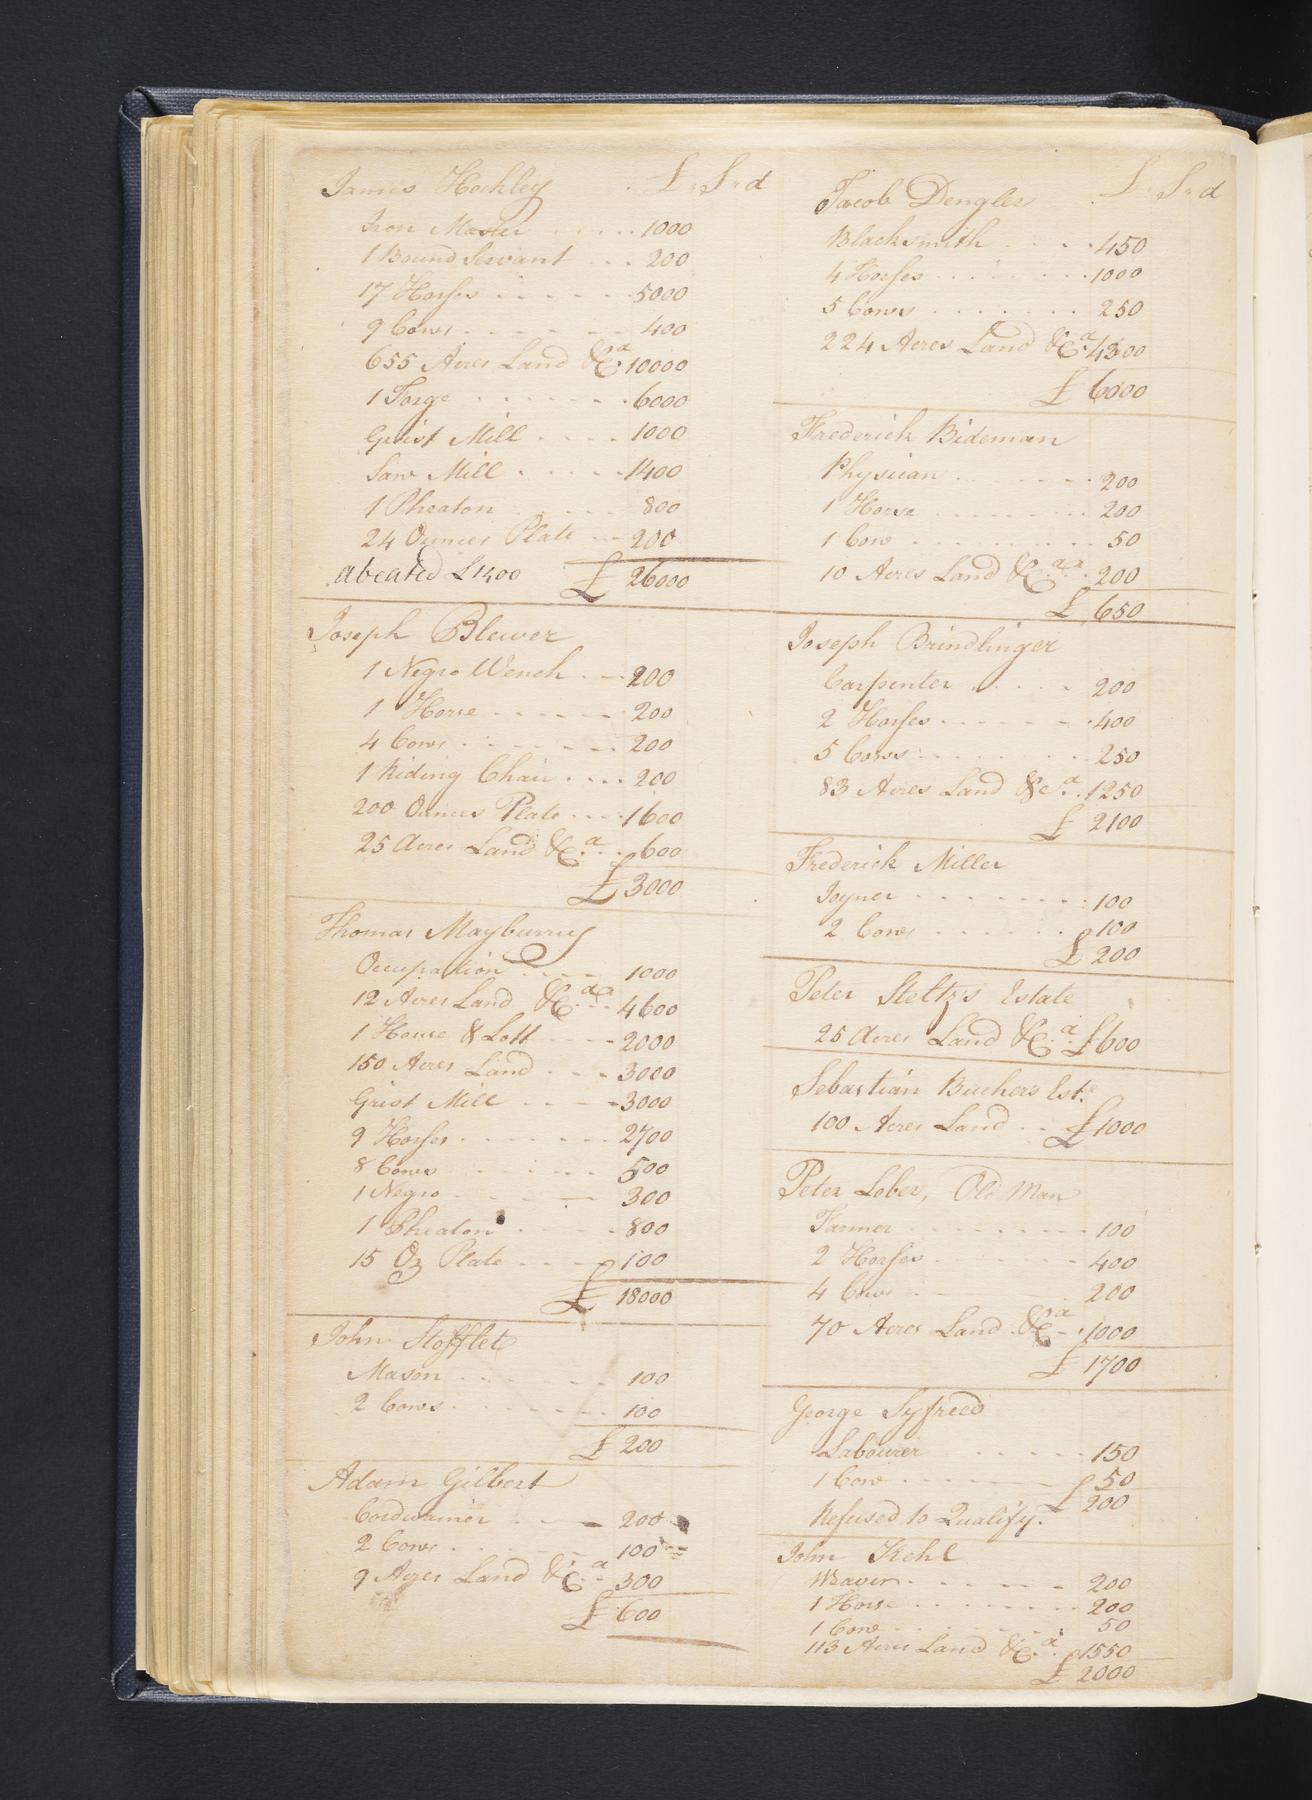 James Hockley £ S d
Iron Master 1000
1 Bound Servant 200
17 Horses 5000
9 Cows 400
655 Acres Land &Ca. 10000
1 Forge 6000
Grist Mill 1000
Saw Mill 1400
1 Pheaton 800
24 Ounces Plate 200
abeated £1400 £ 26000
Joseph Blewer
1 Negro Wench 200
1 Horse 200
4 Cows 200
1 Riding Chair 200
200 Ounces Plate 1600
25 Acres Land &Ca. 600
£ 3000
Thomas Mayburry
Occupation 1000
12 Acres Land &Ca. 4600
1 House & Lott 2000
150 Acres Land 3000
Grist Mill 3000
9 Horses 2700
8 Cows 500
1 Negro 300
1 Pheaton 800
15 Oz Plate 100
£ 18000
John Stofflet
Mason 100
2 Cows 100
£ 200
Adam Gilbert
Cordwainer 200
2 Cows 100
9 Acres Land &Ca. 300
£ 600
Jacob Dengler £ S d
Blacksmith 450
4 Horses 1000
5 Cows 250
224 Acres Land &Ca. 4300
£ 6000
Frederick Bideman
Physician 200
1 Horse 200
1 Cow 50
10 Acres Land &Ca. 200
£ 650
Joseph Brindlinger
Carpenter 200
2 Horses 400
5 Cows 250
83 Acres Land &Ca. 1250
£ 2100
Frederick Miller
Joyner 100
2 Cows 100
£ 200
Peter Steltz's Estate
25 Acres Land &Ca. £600
Sebastian Buchers Este.
100 Acres Land £1000
Peter Lober, Old Man
Farmer 100
2 Horses 400
4 Cows 200
70 Acres Land &Ca. 1000
£ 1700
George Syfried
Labourer 150
1 Cow 50
£ 200
Refused to Qualify.
John Kehl
Weaver 200
1 Horse 200
1 Cow 50
113 Acres Land &Ca. 1550
£ 2000